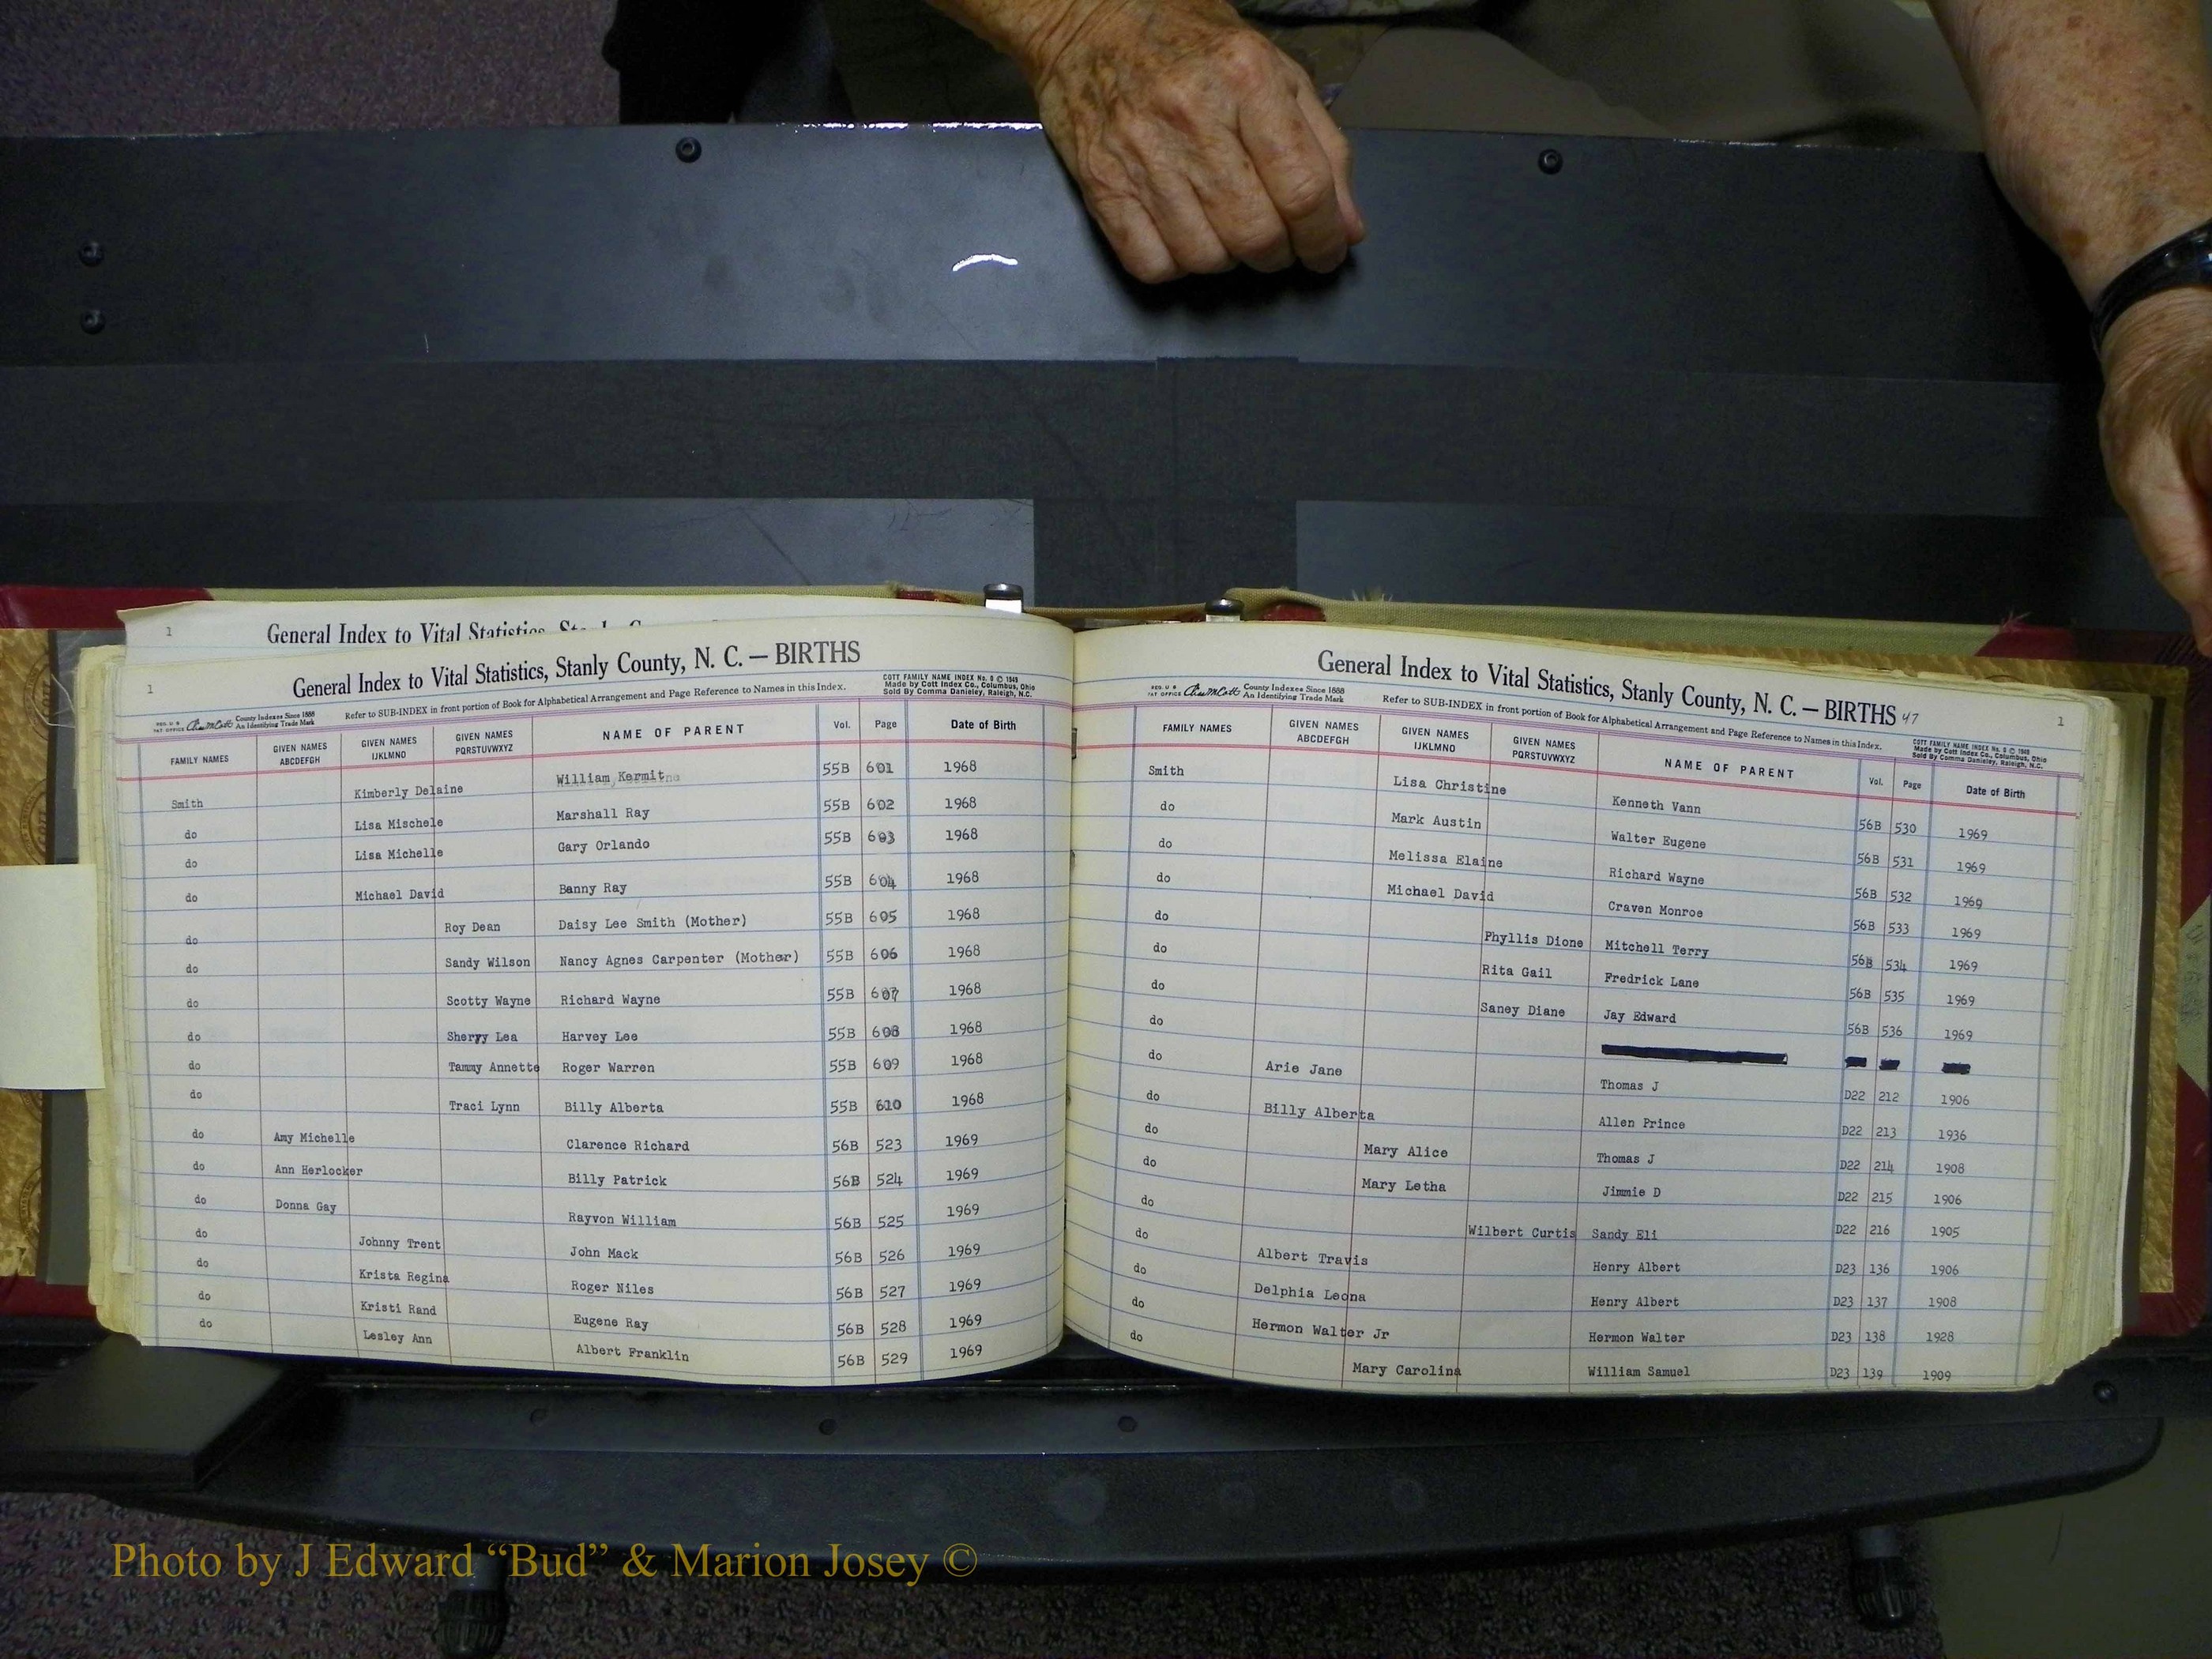 1
General Index to Vital Statistics,
1
General Index to Vital Statistics, Stanly County, N. C. — BIRTHS
County Indexes Since 1888
An Identifying Trade Mark
Refer to SUB-INDEX in front portion of Book for Alphabetical Arrangement and Page Reference to Names in this Index.
COTT FAMILY NAME INDEX No. 9 © 1949
Made by Cott Index Co., Columbus, Ohio
Sold By Comma Danieley, Raleigh, N.C.
FAMILY NAMES GIVEN NAMES ABCDEFGH GIVEN NAMES IJKLMNO GIVEN NAMES PQRSTUVWXYZ NAME OF PARENT Vol. Page Date of Birth
Smith Kimberly Delaine William Kermit 55B 601 1968
do Lisa Mischele Marshall Ray 55B 602 1968
do Lisa Michelle Gary Orlando 55B 603 1968
do Michael David Banny Ray 55B 604 1968
do Roy Dean Daisy Lee Smith (Mother) 55B 605 1968
do Sandy Wilson Nancy Agnes Carpenter (Mother) 55B 606 1968
do Scotty Wayne Richard Wayne 55B 607 1968
do Sheryy Lea Harvey Lee 55B 608 1968
do Tammy Annette Roger Warren 55B 609 1968
do Traci Lynn Billy Alberta 55B 610 1968
do Amy Michelle Clarence Richard 56B 523 1969
do Ann Herlocker Billy Patrick 56B 524 1969
do Donna Gay Rayvon William 56B 525 1969
do Johnny Trent John Mack 56B 526 1969
do Krista Regina Roger Niles 56B 527 1969
do Kristi Rand Eugene Ray 56B 528 1969
do Lesley Ann Albert Franklin 56B 529 1969
General Index to Vital Statistics, Stanly County, N. C. — BIRTHS 47
1
County Indexes Since 1888
An Identifying Trade Mark
Refer to SUB-INDEX in front portion of Book for Alphabetical Arrangement and Page Reference to Names in this Index.
COTT FAMILY NAME INDEX No. 9 © 1949
Made by Cott Index Co., Columbus, Ohio
Sold By Comma Danieley, Raleigh, N.C.
FAMILY NAMES GIVEN NAMES ABCDEFGH GIVEN NAMES IJKLMNO GIVEN NAMES PQRSTUVWXYZ NAME OF PARENT Vol. Page Date of Birth
Smith Lisa Christine Kenneth Vann 56B 530 1969
do Mark Austin Walter Eugene 56B 531 1969
do Melissa Elaine Richard Wayne 56B 532 1969
do Michael David Craven Monroe 56B 533 1969
do Phyllis Dione Mitchell Terry 56B 534 1969
do Rita Gail Fredrick Lane 56B 535 1969
do Saney Diane Jay Edward 56B 536 1969
do
do Arie Jane Thomas J D22 212 1906
do Billy Alberta Allen Prince D22 213 1936
do Mary Alice Thomas J D22 214 1908
do Mary Letha Jimmie D D22 215 1906
do Wilbert Curtis Sandy Eli D22 216 1905
do Albert Travis Henry Albert D23 136 1906
do Delphia Leona Henry Albert D23 137 1908
do Hermon Walter Jr Hermon Walter D23 138 1928
do Mary Carolina William Samuel D23 139 1909
Photo by J Edward “Bud” & Marion Josey ©